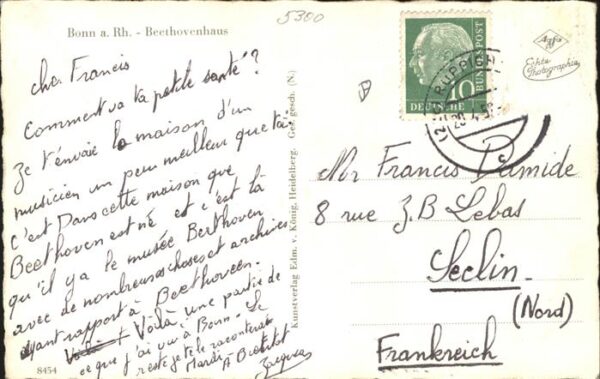 Bonn a. Rh. - Beethovenhaus
5300
cher Francis
Comment va ta petite santé?
Je t'envoie la maison d'un
musicien un peu meilleur que toi
c'est Dans cette maison que
Beethoven est né et c'est là
qu'il y a le musée Beethoven
avec de nombreuses choses et archives
ayant rapport à Beethoven.
Voilà une partie de
ce que j'ai vu à Bonn. Le
reste je te le raconterai
Mardi
A Bientôt
Jacques
8454
Kunstverlag Edm. v. König, Heidelberg. Ges. gesch. (N)
10
DEUTSCHE
BUNDESPOST
RUPP
c
Agfa
Echte
Photographie
Mr Francis Damide
8 rue J.B Lebas
Seclin
(Nord)
Frankreich